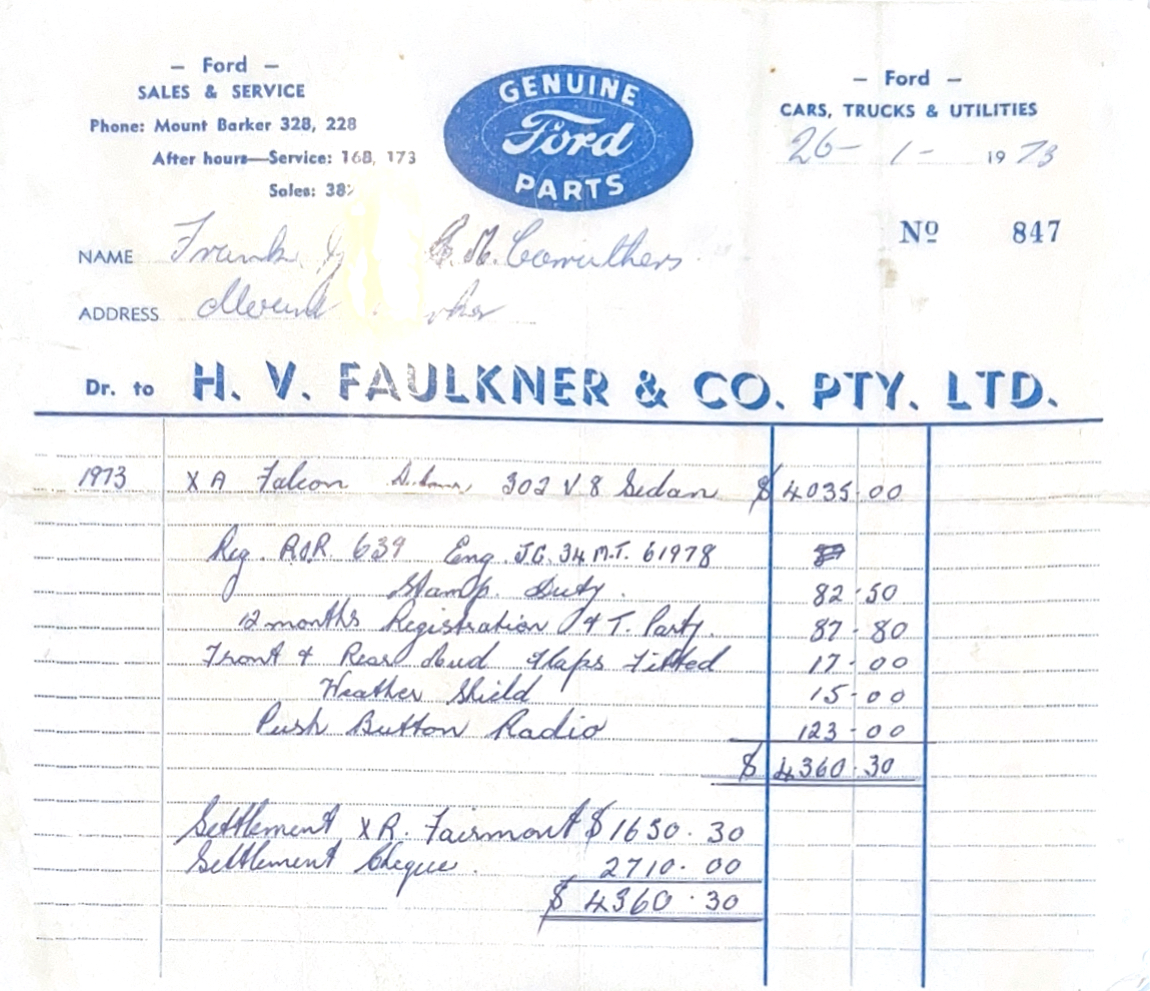 — Ford —
SALES & SERVICE
Phone: Mount Barker 328, 228
After hours—Service: 168, 173
Sales: 38
GENUINE
Ford
PARTS
— Ford —
CARS, TRUCKS & UTILITIES
26 - 1 - 1973
Nº 847
NAME Frank
ADDRESS Mount
Dr. to H. V. FAULKNER & CO. PTY. LTD.
1973 XA Falcon 302 V.8 Sedan $ 4035.00
Reg. RSR. 639 Eng. JG.34 M.T. 61978
Stamp Duty. 82.50
12 months Registration & T. Party. 87-80
Front & Rear Mud Flaps Fitted 17-00
Weather Shield 15-00
Push Button Radio 123-00
$ 4360.30
Settlement XR. Fairmont $ 1650.30
Settlement Cheque. 2710.00
$ 4360.30